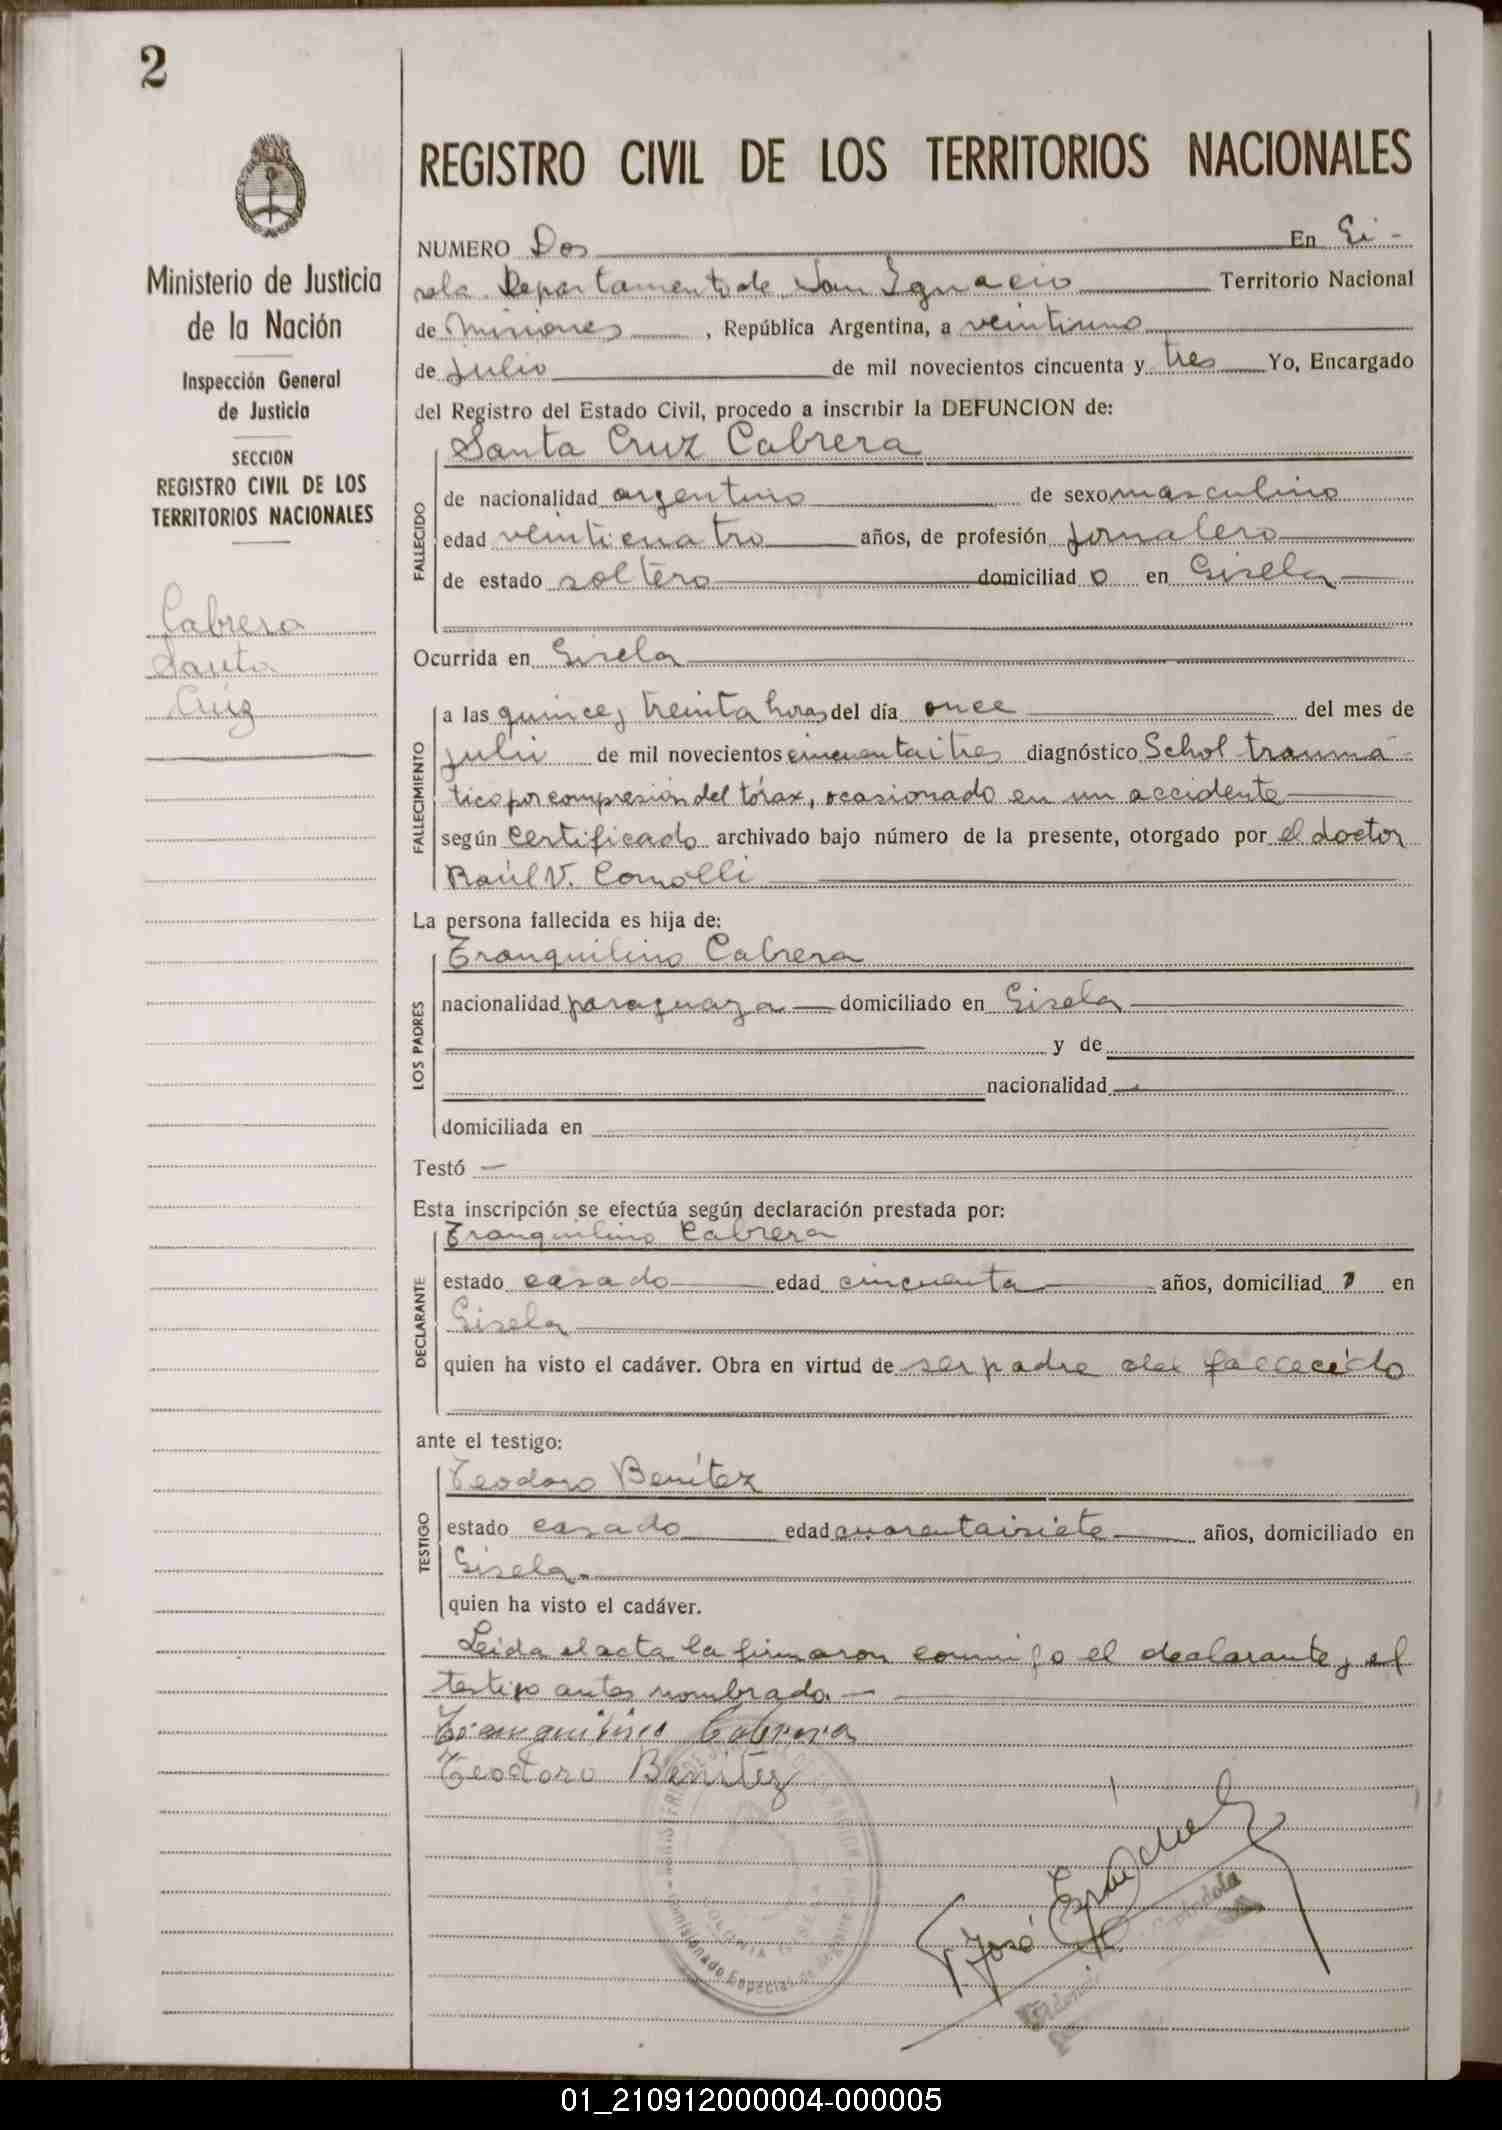 2
Ministerio de Justicia
de la Nación
Inspección General
de Justicia
SECCION
REGISTRO CIVIL DE LOS
TERRITORIOS NACIONALES
Cabrera
Santa
Cruz
REGISTRO CIVIL DE LOS TERRITORIOS NACIONALES
NUMERO Dos En Gi-
sela Departamento de San Ignacio Territorio Nacional
de Misiones, República Argentina, a veintiuno
de Julio de mil novecientos cincuenta y tres Yo, Encargado
del Registro del Estado Civil, procedo a inscribir la DEFUNCION de:
Santa Cruz Cabrera
FALLECIDO
de nacionalidad argentino de sexo masculino
edad veinticuatro años, de profesión Jornalero
de estado soltero domiciliado en Gisela
Ocurrida en Gisela
FALLECIMIENTO
a las quince y treinta horas del día once del mes de
Julio de mil novecientos cincuentaitres diagnóstico Schol traumá-
tico por compresión del tórax, ocasionado en un accidente
según certificado archivado bajo número de la presente, otorgado por el doctor
Raúl V. Comolli
La persona fallecida es hija de:
LOS PADRES
Tranquilino Cabrera
nacionalidad paraguaya domiciliado en Gisela
y de
nacionalidad
domiciliada en
Testó —
Esta inscripción se efectúa según declaración prestada por:
DECLARANTE
Tranquilino Cabrera
estado casado edad cincuenta años, domiciliad en
Gisela
quien ha visto el cadáver. Obra en virtud de ser padre del fallecido
ante el testigo:
TESTIGO
Teodoro Benítez
estado casado edad cuarentaisiete años, domiciliado en
Gisela
quien ha visto el cadáver.
Leida el acta la firmaron conmigo el declarante y el
testigo antes nombrado.—
Tranquilino Cabrera
Teodoro Benitez
COLONIA GISELA
José
01_210912000004-000005